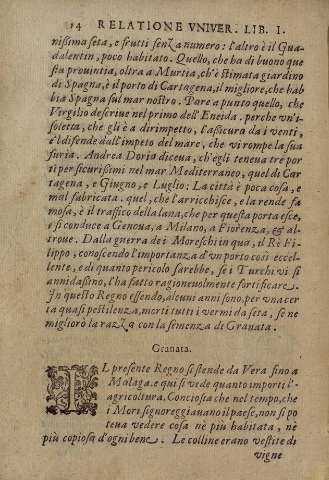 14 RELATIONE VNIVER. LIB. I.
nissima seta, e frutti senza numero: l'altro è il Gua-
dalentin, poco habitato. Quello, che ha di buono que
sta prouintia, oltra a Murtia, ch'è stimata giardino
di Spagna, è il porto di Cartagena, il migliore, che hab
bia Spagna sul mar nostro. Pare a punto quello, che
Virgilio descriue nel primo dell'Eneida. perche vn'i-
soletta, che gli è a dirimpetto, l'assicura da i venti,
e'l difende dall'impeto del mare, che vi rompe la sua
furia. Andrea Doria diceua, ch'egli teneua tre por
ti per sicurissimi nel mar Mediterraneo, quel di Car
tagena, e Giugno, e Luglio: La città è poca cosa, e
mal fabricata. quel, che l'arricchisce, e la rende fa
mosa, è il traffico della lana, che per questa porta esce,
e si conduce a Genoua, a Milano, a Fiorenza, & al-
troue. Dalla guerra de i Moreschi in qua, il Rè Fi-
lippo, conoscendo l'importanza d'vn porto così eccel-
lente, e di quanto pericolo sarebbe, se i Turchi vi si
annidassino, l'ha fatto ragioneuolmente fortificare.
In questo Regno essendo, alcuni anni sono, per vna cer
ta quasi pestilenza, morti tutti i vermi da seta, se ne
migliorò la razza con la semenza di Granata.
Granata.
IL presente Regno si stende da Vera fino a
Malaga. e qui si vede quanto importi l'-
agricoltura. Conciosia che nel tempo, che
i Mori signoreggiauano il paese, non si po
teua vedere cosa nè più habitata, nè
più copiosa d'ogni bene. Le colline erano vestite di
vigne